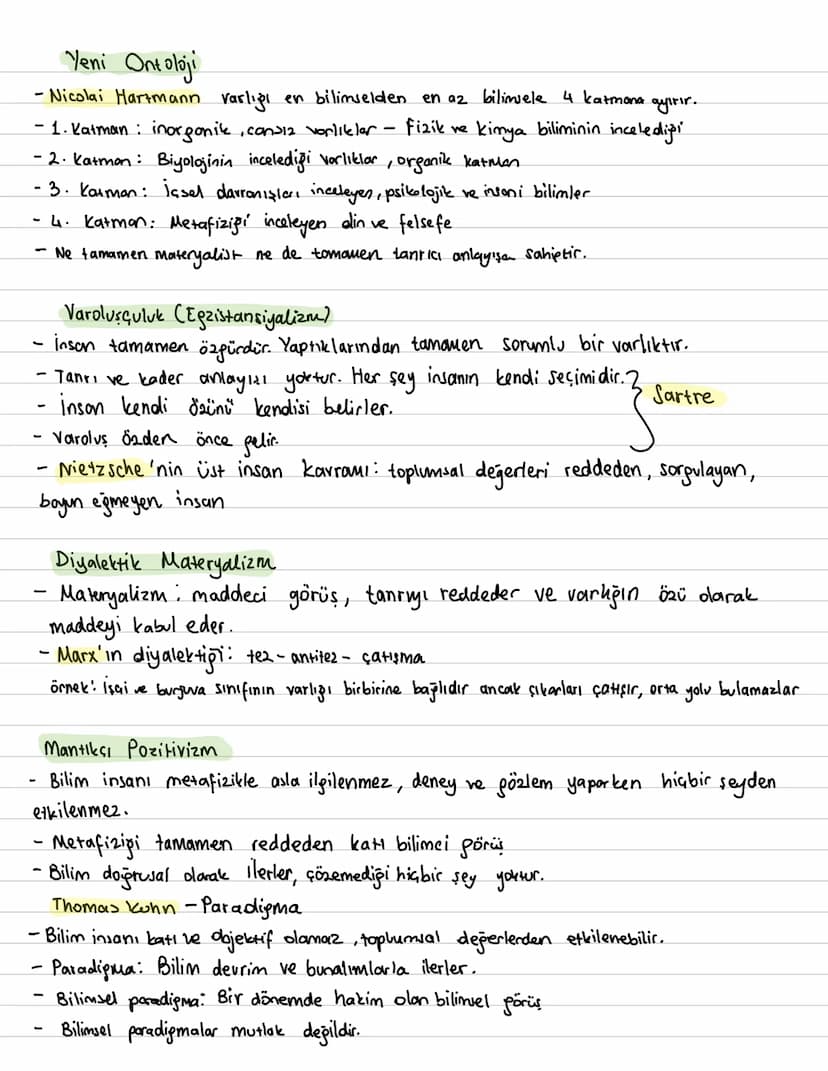 Yeni Ontoloji
- Nicolai Hartmann varlığı en bilimselden en az bilimsele 4 katmana ayırır.
- 1. Katman : inorganik , cansız varlıklar - Fizik ve kimya biliminin incelediği
- 2. Katman : Biyolojinin incelediği varlıklar , organik katman
- 3. Katman : İçsel davranışları inceleyen, psikolojik ve insani bilimler
- 4. Katman : Metafiziği inceleyen din ve felsefe
- Ne tamamen materyalist ne de tamamen tanrıcı anlayışa sahiptir.
Varoluşçuluk (Egzistansiyalizm)
- İnsan tamamen özgürdür. Yaptıklarından tamamen sorumlu bir varlıktır.
- Tanrı ve kader anlayışı yoktur. Her şey insanın kendi seçimidir.
- İnsan kendi özünü kendisi belirler.
Sartre
- Varoluş özden önce gelir.
- Nietzsche'nin üst insan kavramı : toplumsal değerleri reddeden, sorgulayan,
boyun eğmeyen insan
Diyalektik Materyalizm
- Materyalizm : maddeci görüş, tanrıyı reddeder ve varlığın özü olarak
maddeyi kabul eder.
- Marx'ın diyalektiği : tez - antitez - çatışma
örnek : İşçi ve burjuva sınıfının varlığı birbirine bağlıdır ancak çıkarları çatışır, orta yolu bulamazlar
Mantıkçı Pozitivizm
- Bilim insanı metafizikle asla ilgilenmez, deney ve gözlem yaparken hiçbir şeyden
etkilenmez.
- Metafiziği tamamen reddeden katı bilimci görüş
- Bilim doğrusal olarak ilerler, çözemediği hiçbir şey yoktur.
Thomas Kuhn - Paradigma
- Bilim insanı katı ve objektif olamaz , toplumsal değerlerden etkilenebilir.
- Paradigma : Bilim devrim ve bunalımlarla ilerler.
- Bilimsel paradigma : Bir dönemde hakim olan bilimsel görüş
- Bilimsel paradigmalar mutlak değildir.